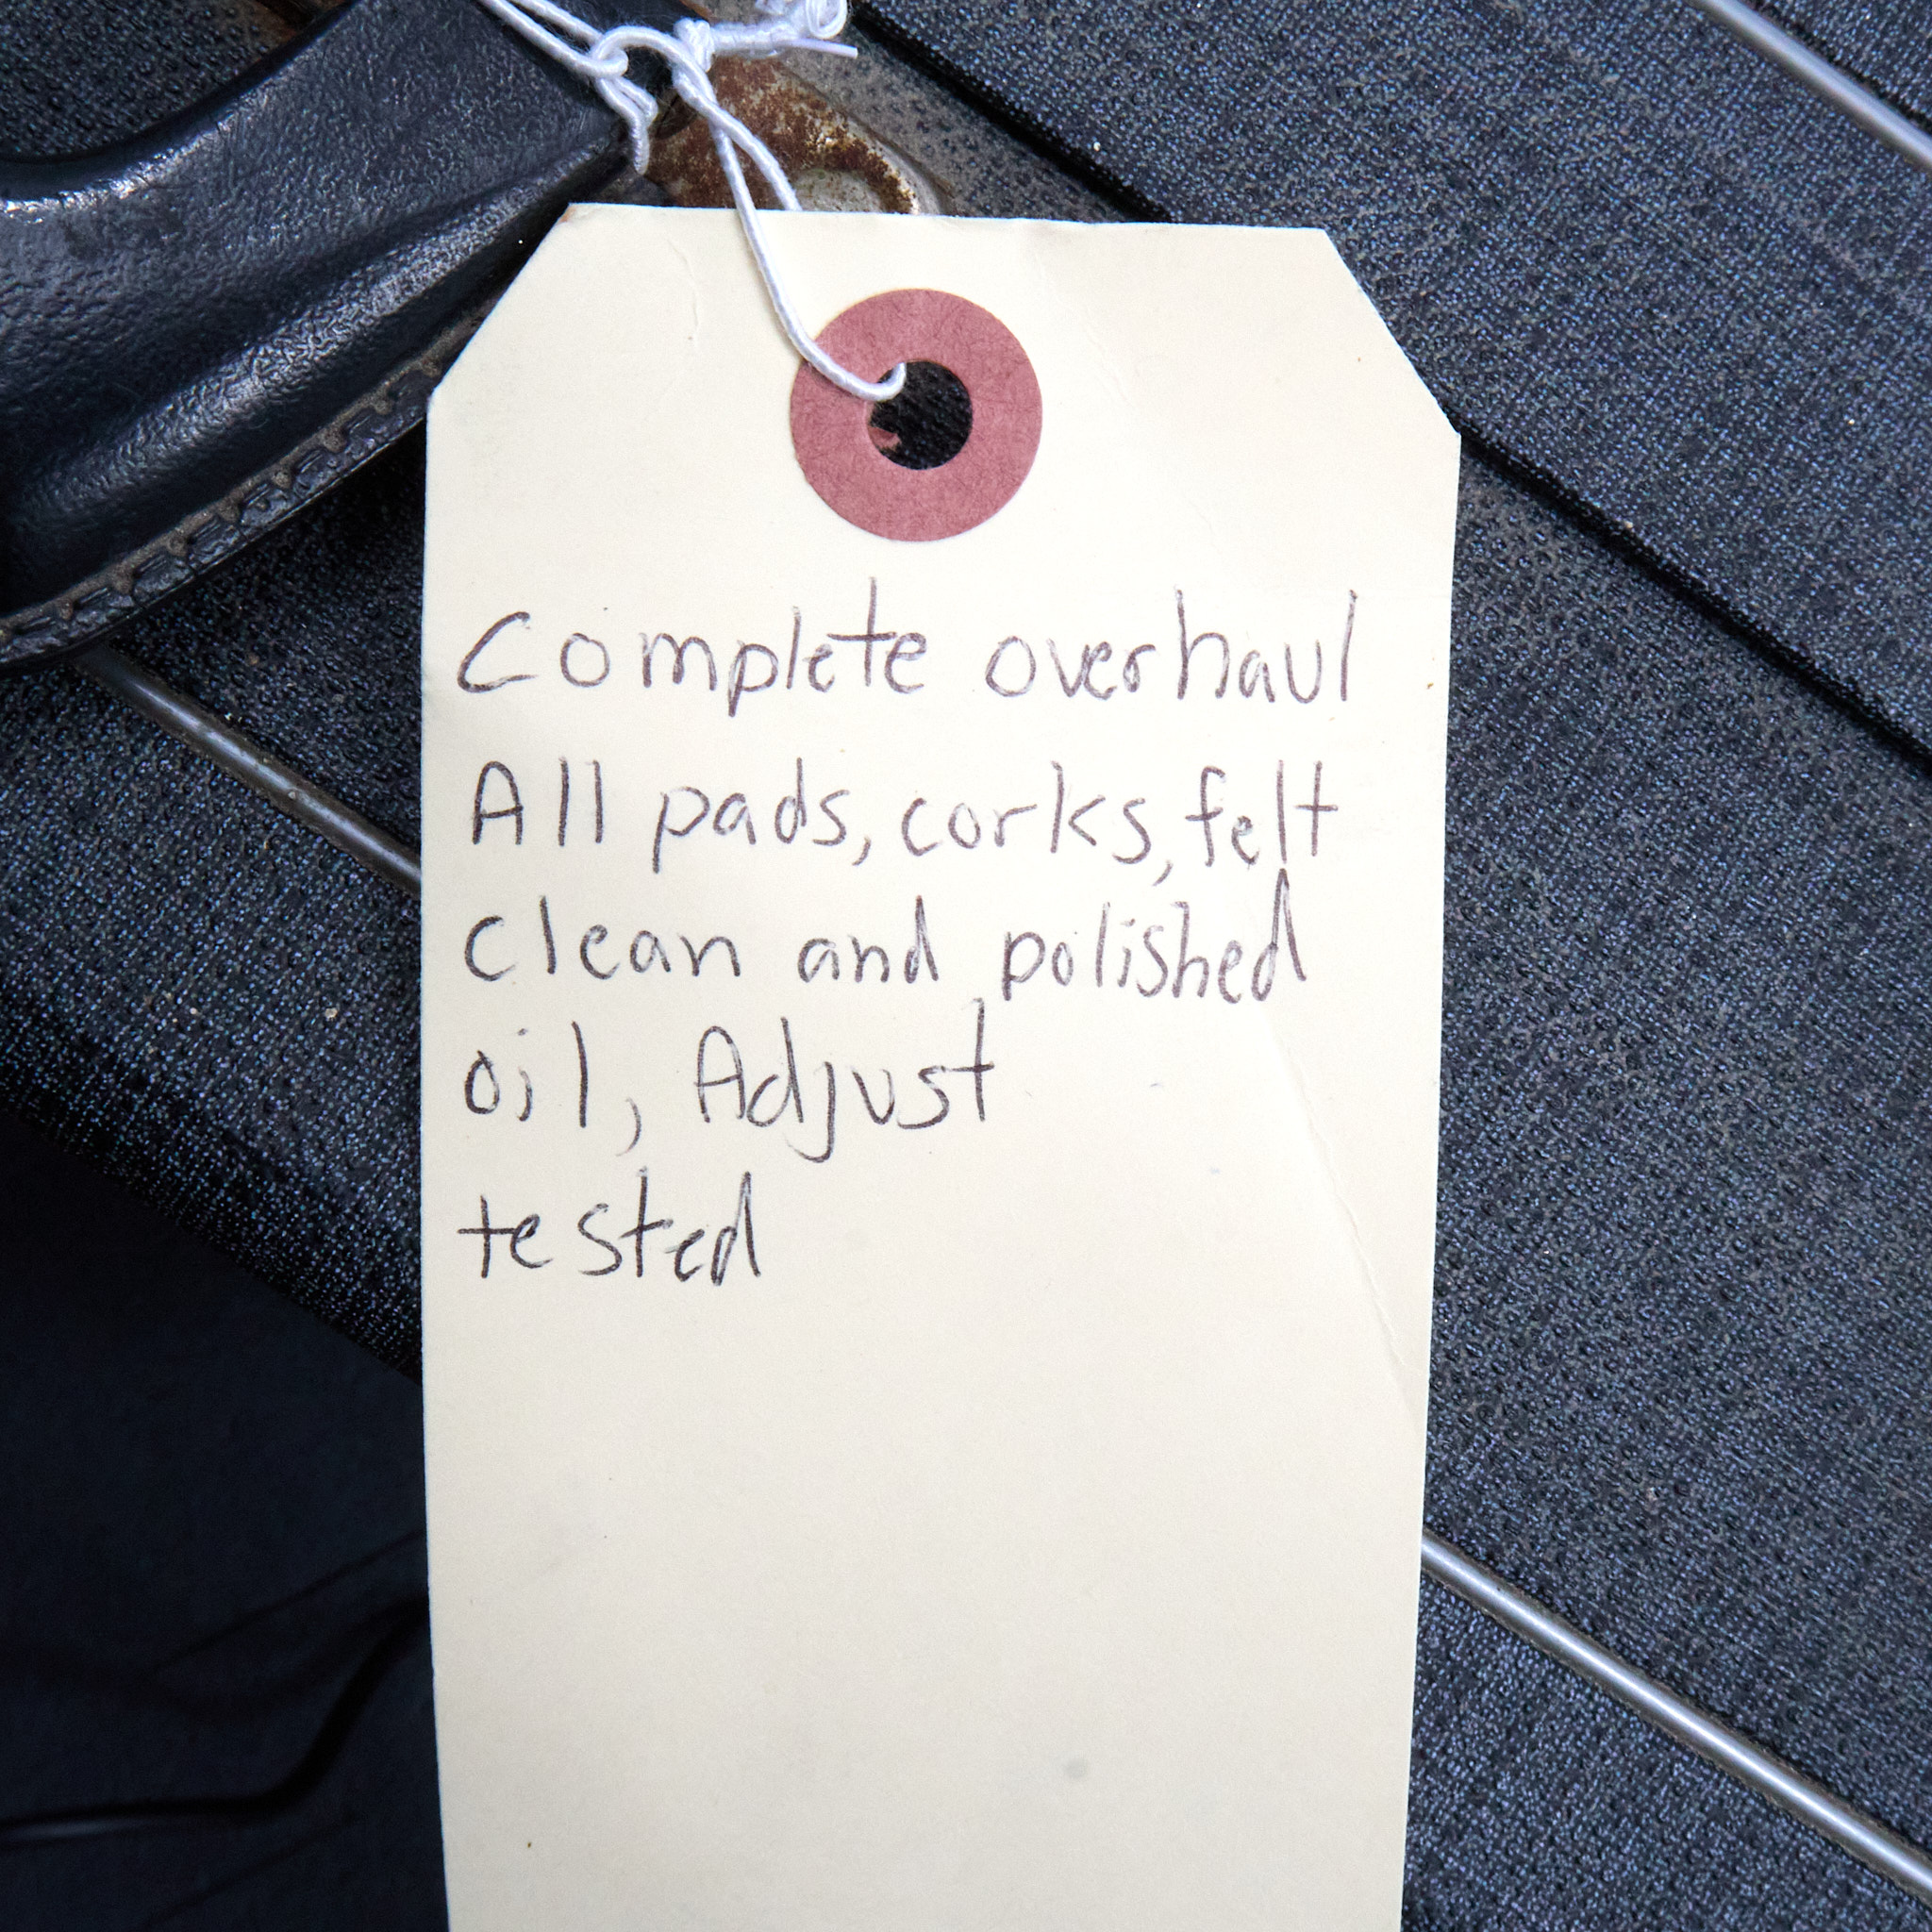 Complete overhaul
All pads, corks, felt
clean and polished
oil, Adjust
tested